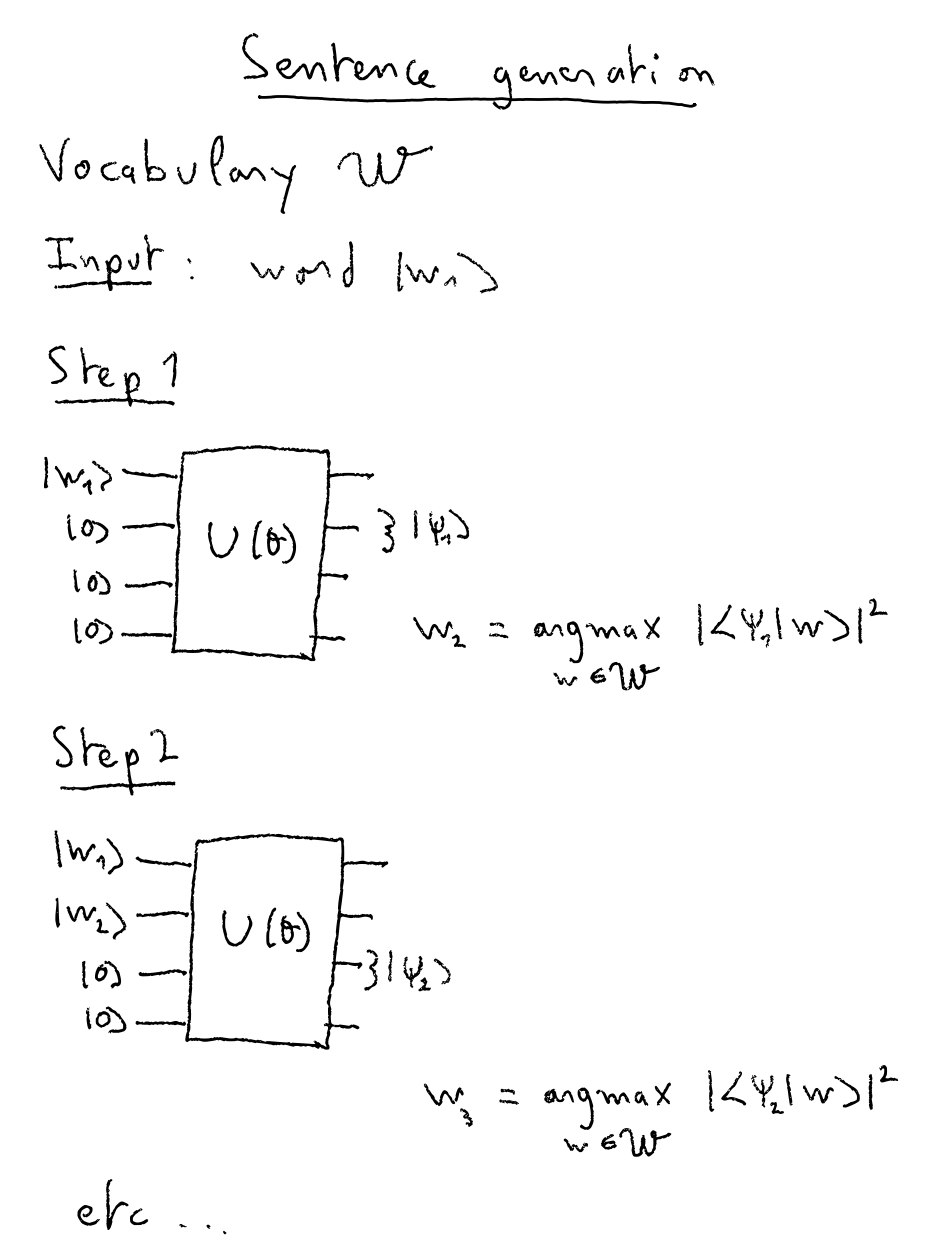 Sentence generation
Vocabulary 𝒲
Input : word |w₁⟩
Step 1
|w₁⟩
|0⟩
|0⟩
|0⟩
U(θ)
} |ψ₁⟩
w₂ = argmax |<ψ₁|w>|²
w ∈ 𝒲
Step 2
|w₁⟩
|w₂⟩
|0⟩
|0⟩
U(θ)
} |ψ₂⟩
w₃ = argmax |<ψ₂|w>|²
w ∈ 𝒲
etc ...